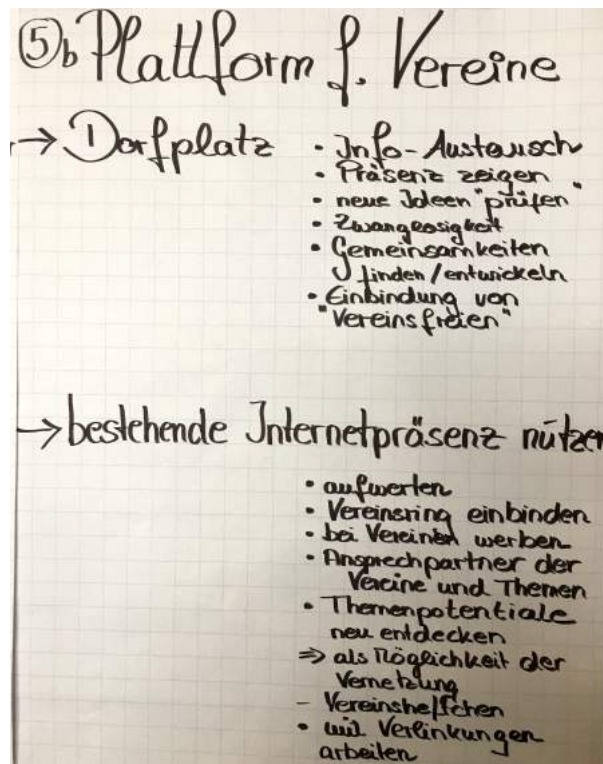 5b Plattform f. Vereine
→ Dorfplatz
• Info-Austausch
• Präsenz zeigen
• neue Ideen "prüfen"
• Zwanglosigkeit
• Gemeinsamkeiten
finden/entwickeln
• Einbindung von
"Vereinsfreien"
→ bestehende Internetpräsenz nützen
• aufwerten
• Vereinsring einbinden
• bei Vereinen werben
• Ansprechpartner der
Vereine und Themen
• Themenpotentiale
neu entdecken
⇒ als Möglichkeit der
Vernetzung
- Vereinsheftchen
• mit Verlinkungen
arbeiten